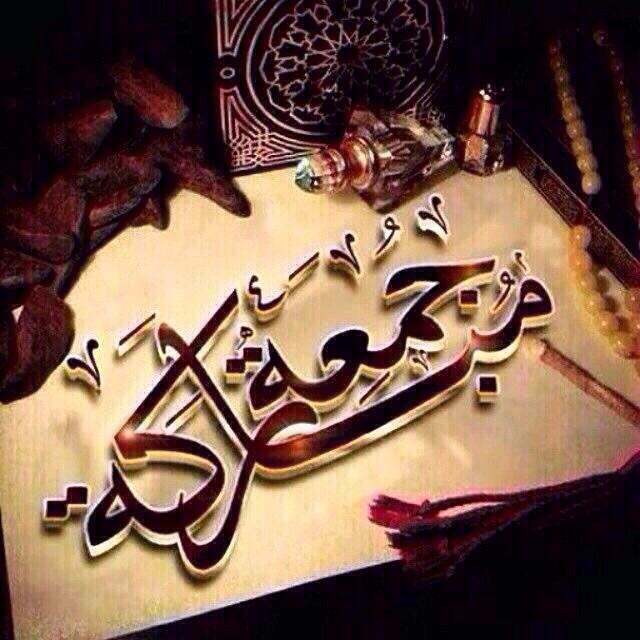 جمعة
مباركة